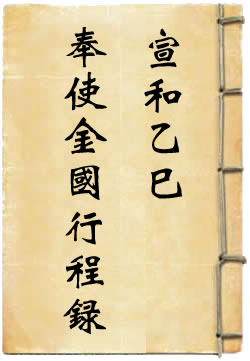 宣和乙巳
奉使金國行程録